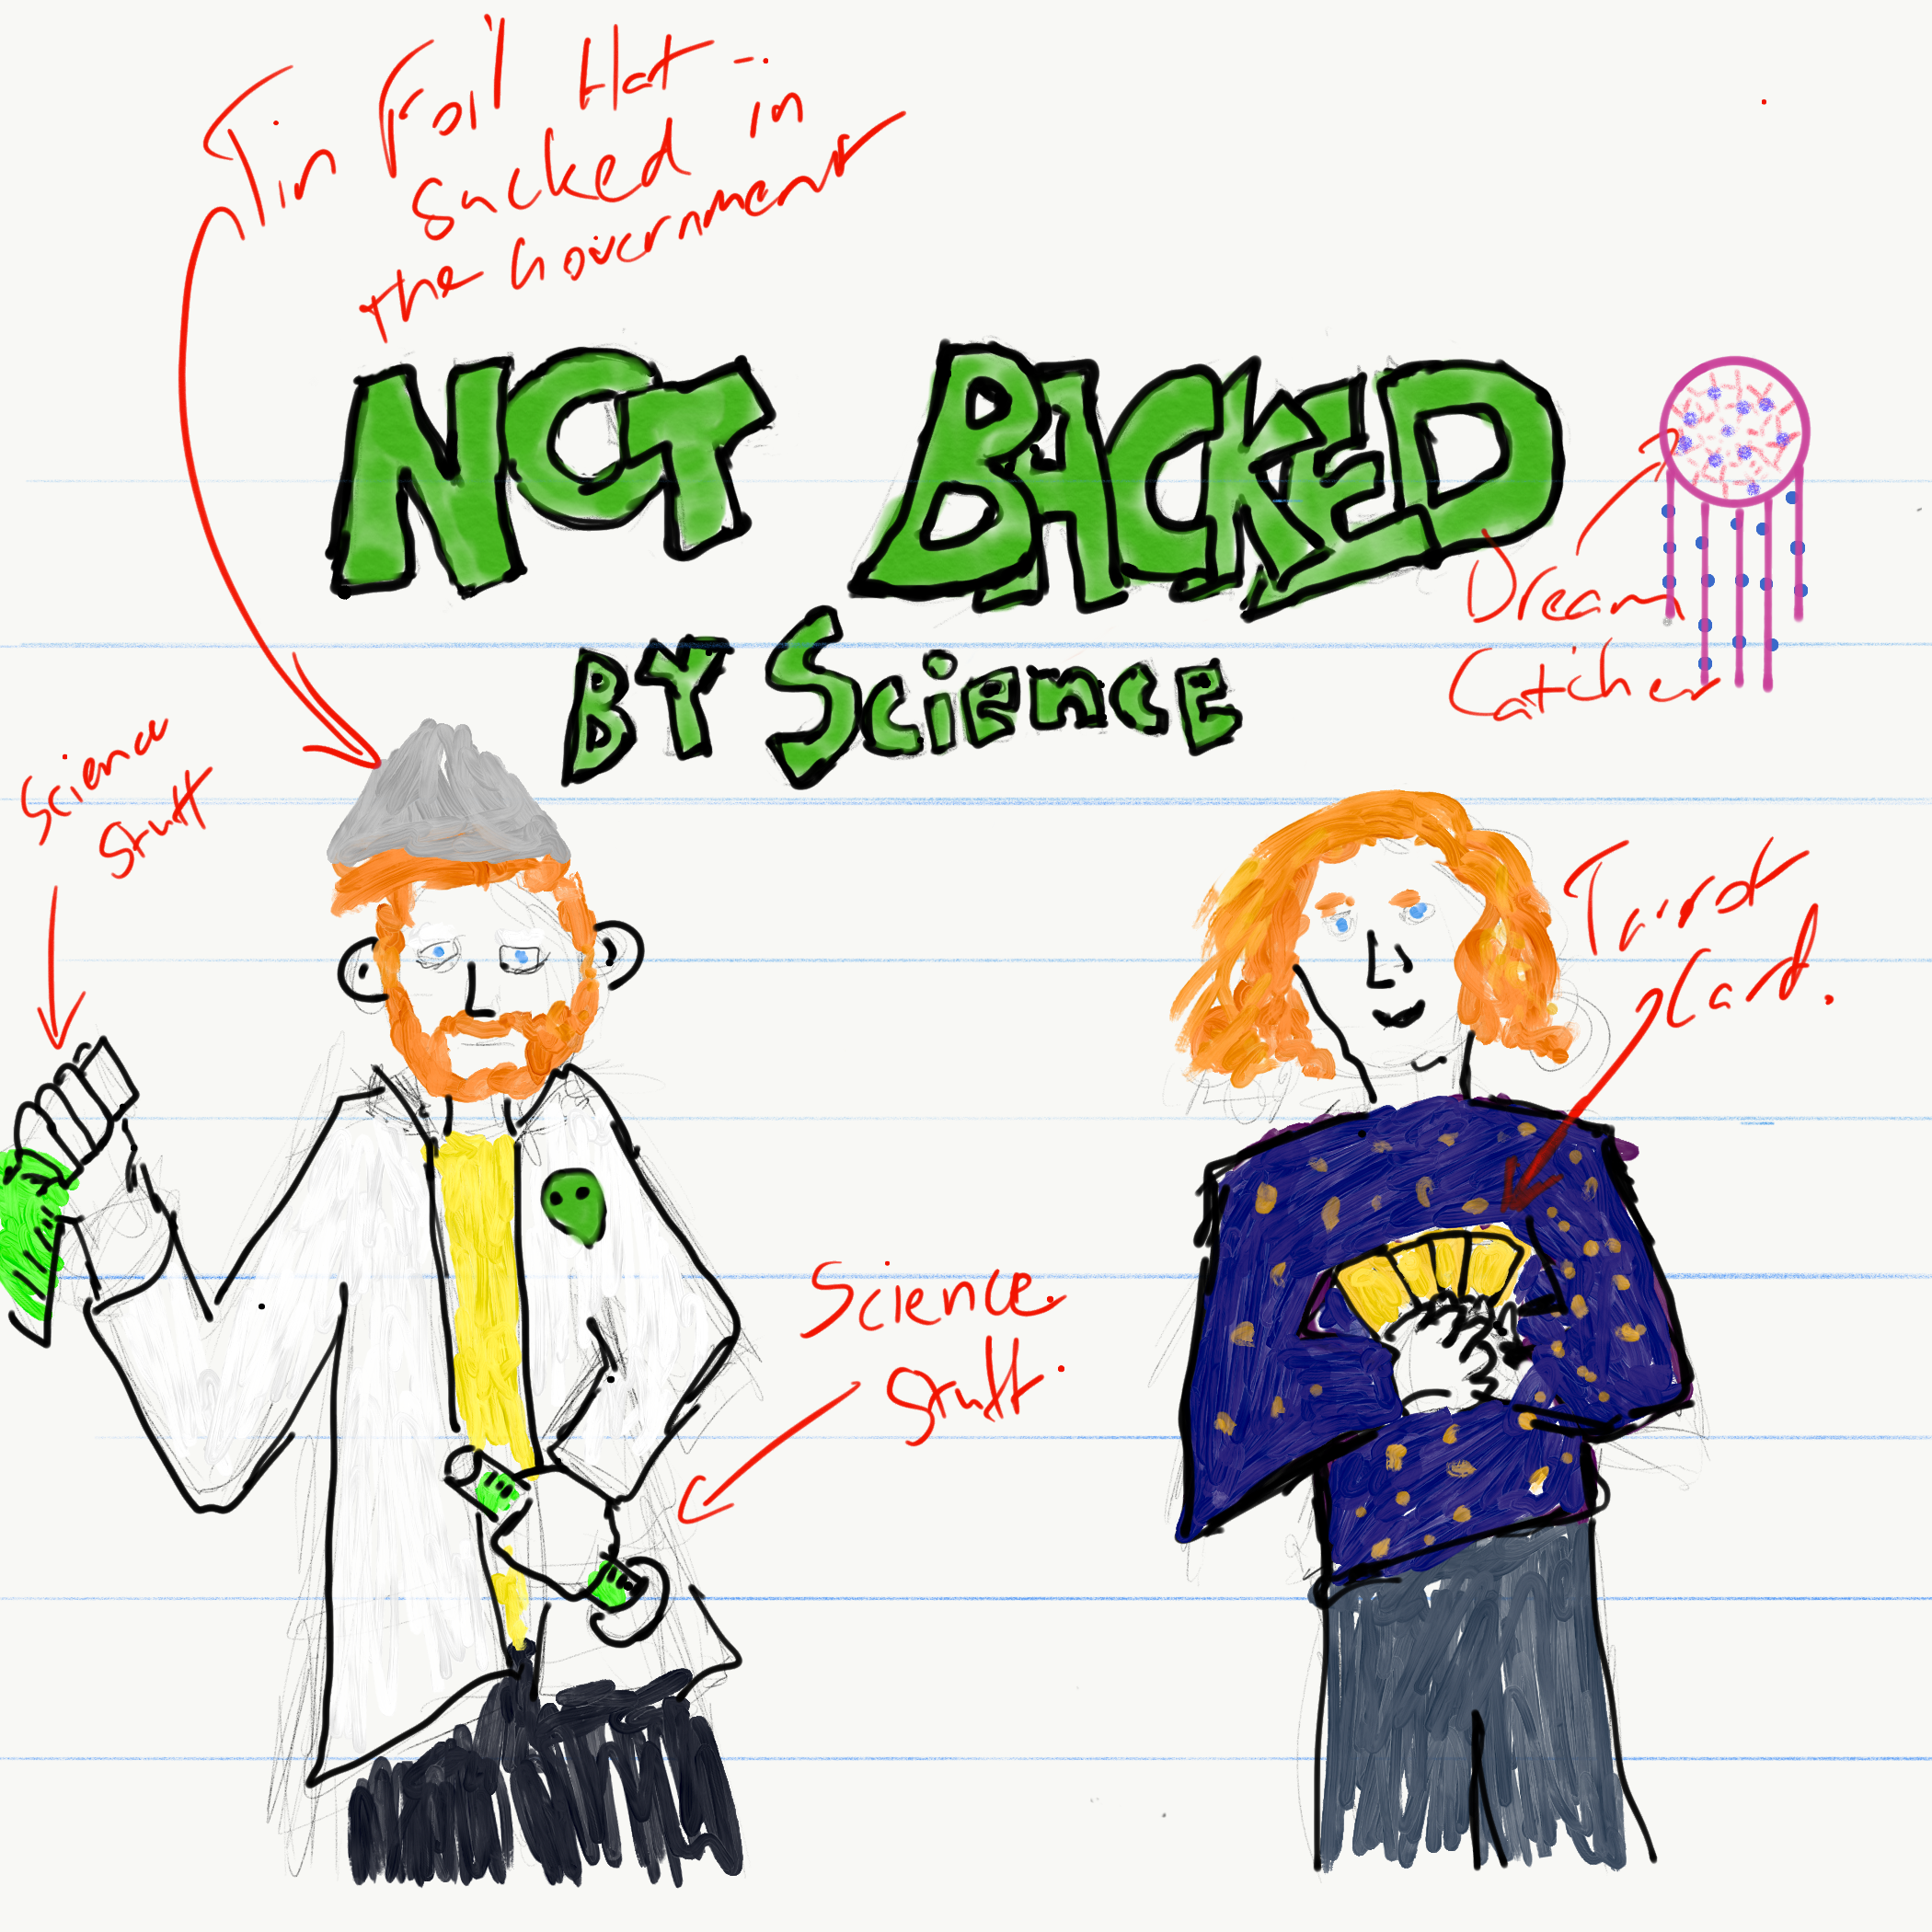 Tin Foil Hat -
sucked in
the Government
NOT BACKED
BY Science
Dream
Catcher
Science
Stuff
Tarot
Card.
Science
Stuff